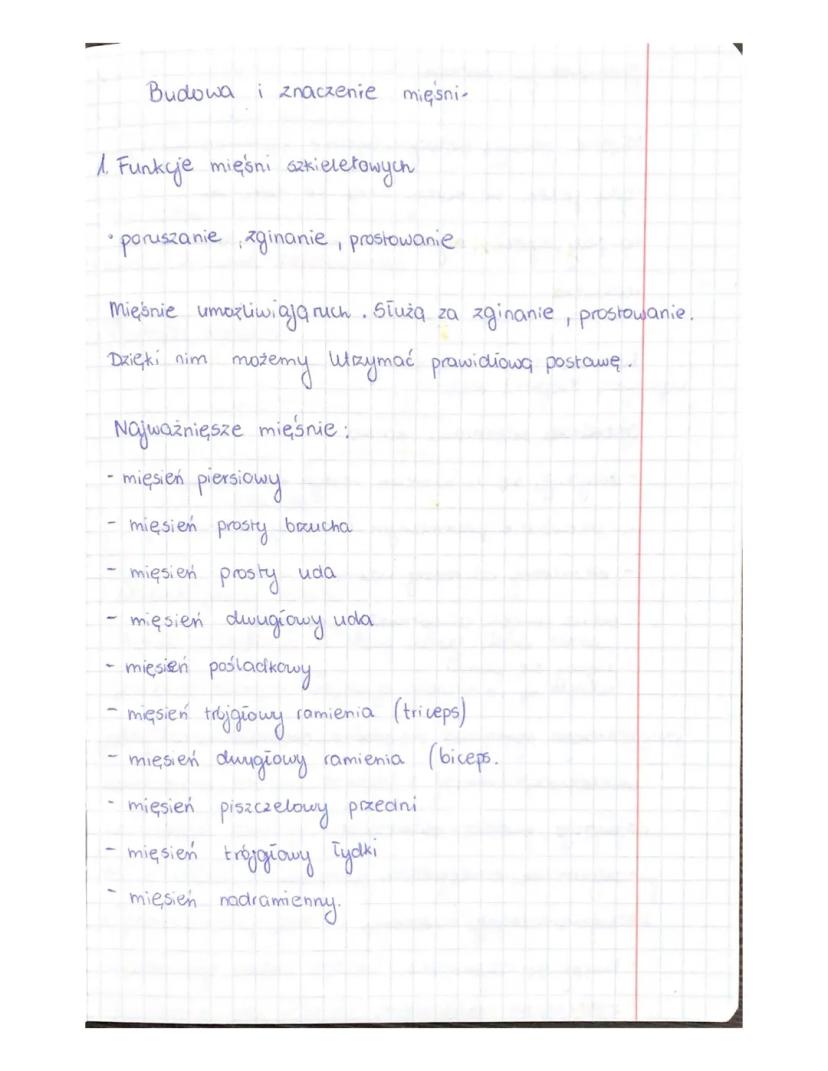 Budowa i znaczenie mięśni.
1. Funkcje mięśni szkieletowych
• poruszanie, zginanie, prostowanie
Mięśnie umożliwiają ruch. Służą za zginanie, prostowanie.
Dzięki nim możemy utrzymać prawidłową postawę.
Najważnięsze mięśnie:
- mięsień piersiowy
- mięsień prosty brzucha
- mięsień prosty uda
- mięsień dwugłowy uda
- mięsień pośladkowy
- mięsień trójgłowy ramienia (triceps)
- mięsień dwugłowy ramienia (biceps.
- mięsień piszczelowy przedni
- mięsień trójgłowy łydki
- mięsień nadramienny.